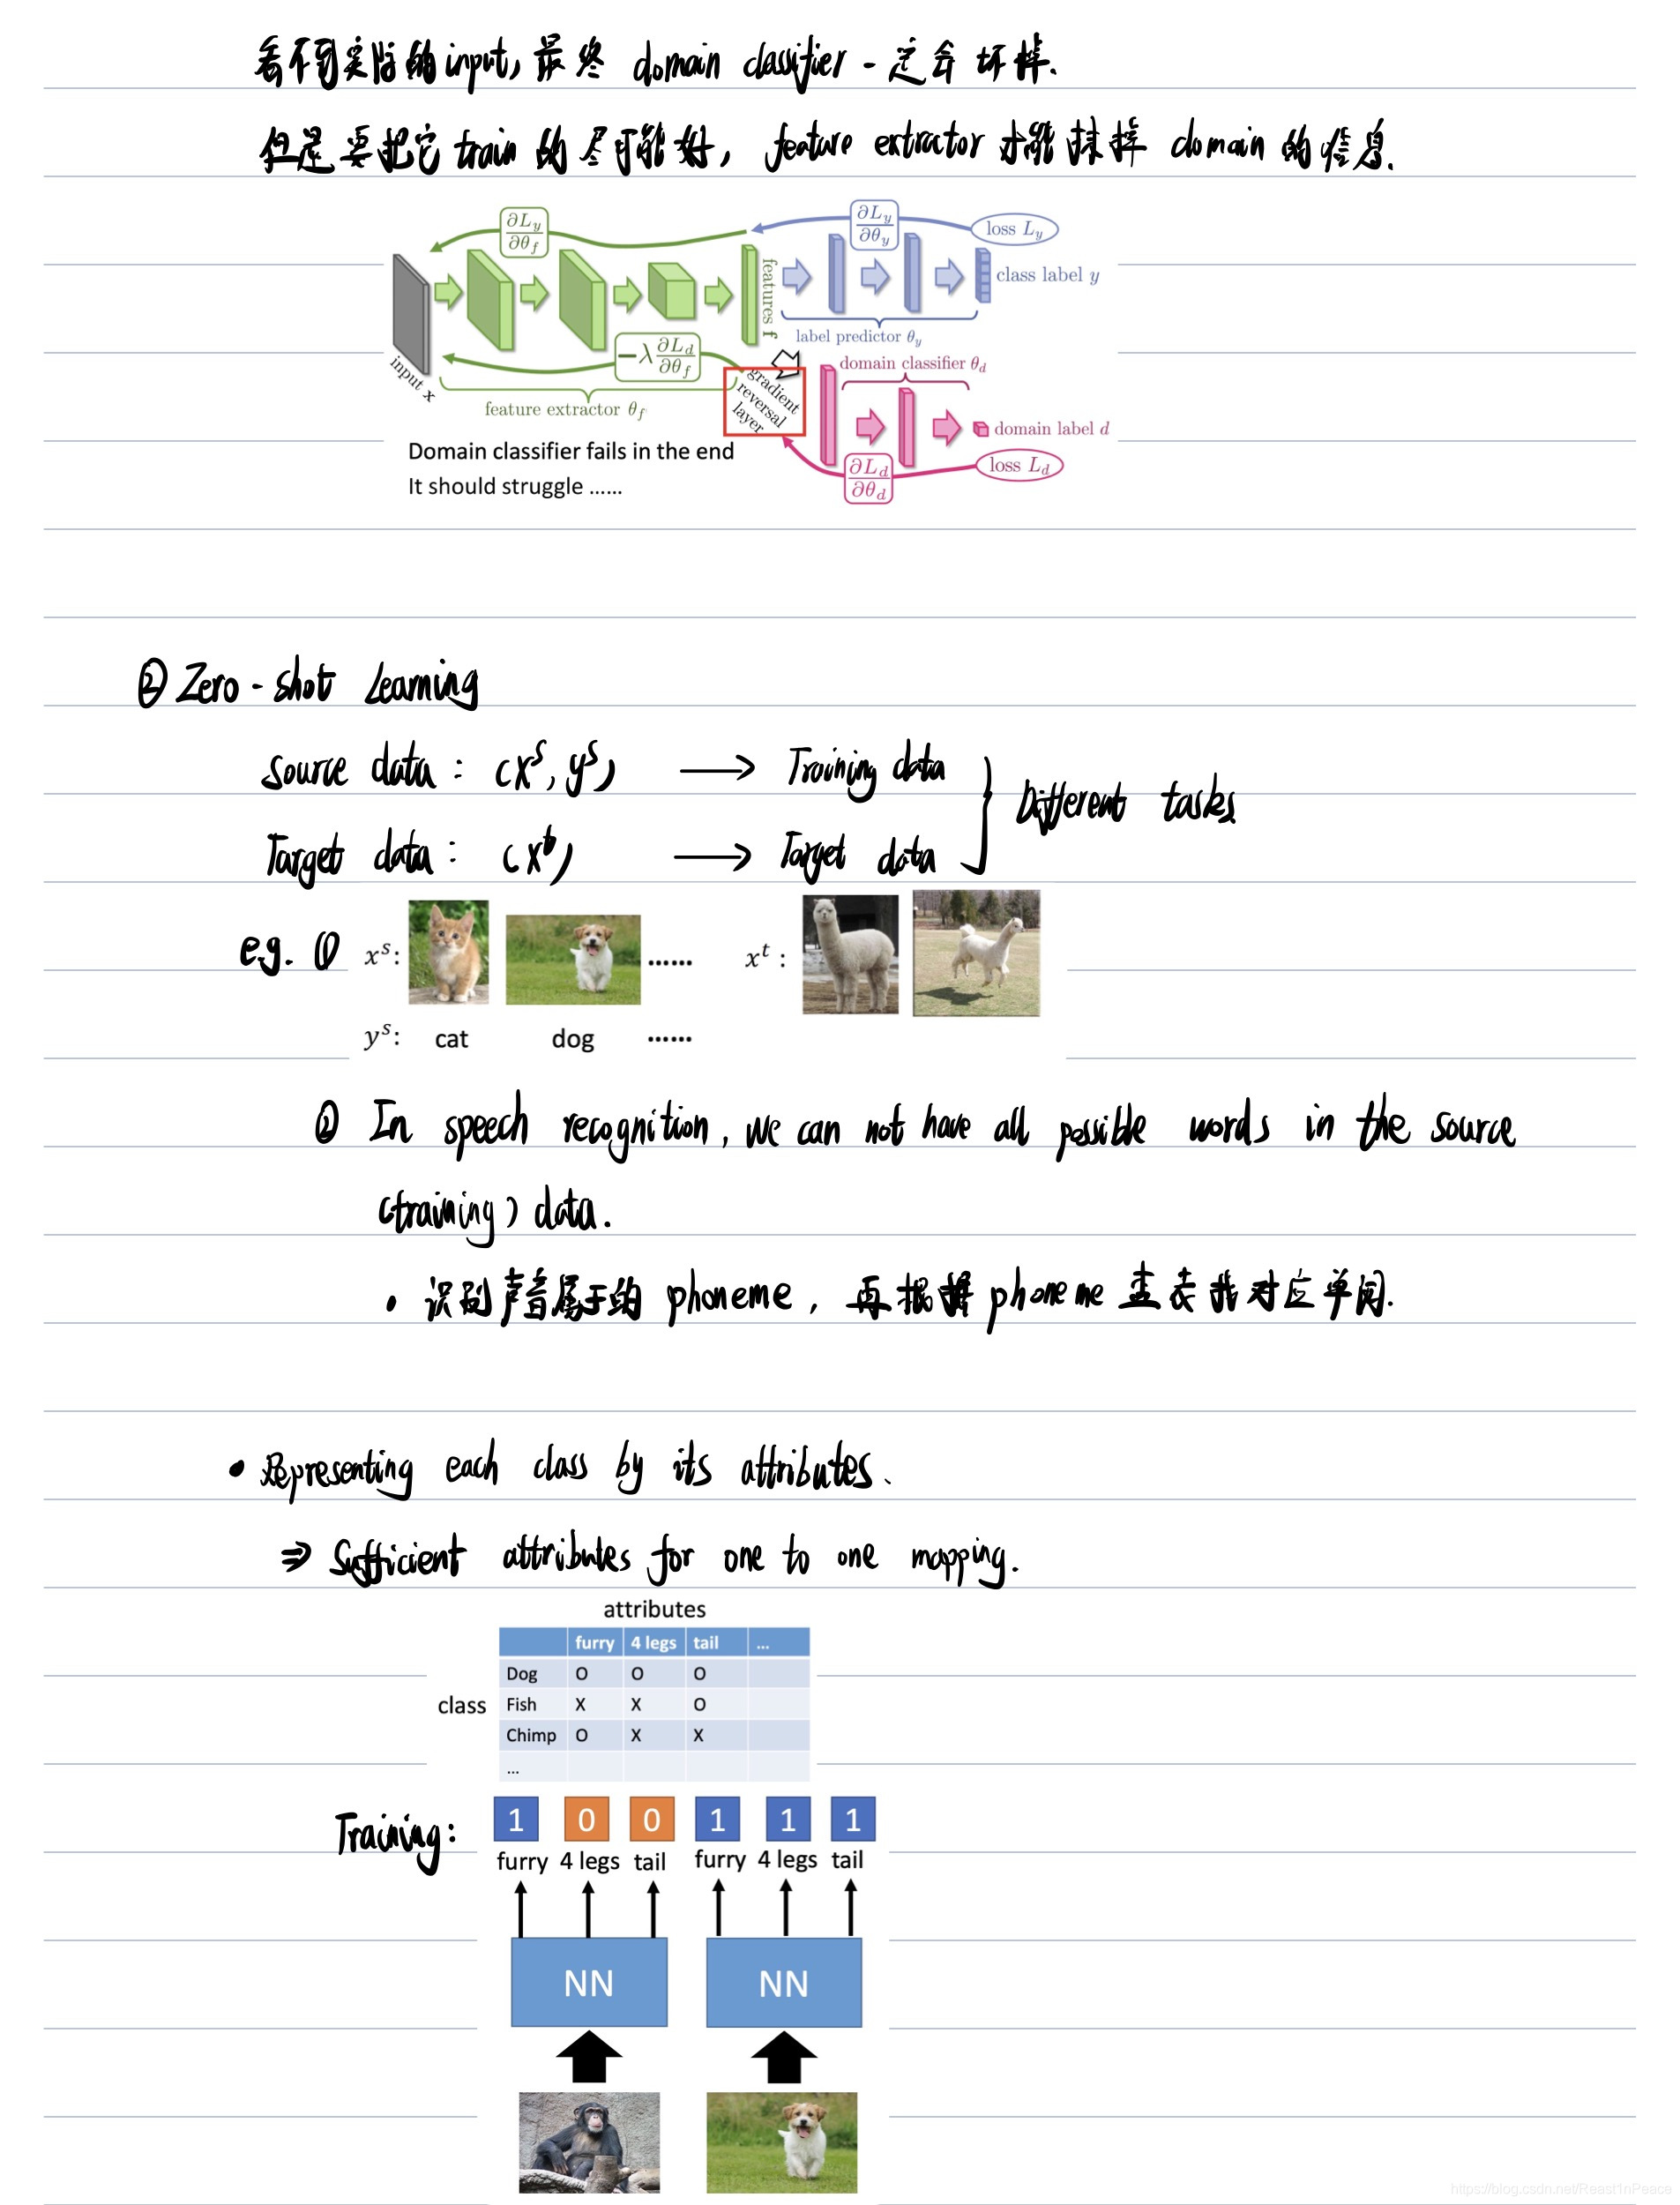 看不到实际的input, 最终 domain classifier 一定会坏掉.
但是要把它train的尽可能好, feature extractor 才能抹掉 domain 的信息.
∂L_y/∂θ_f
∂L_y/∂θ_y
loss L_y
features f
class label y
label predictor θ_y
input x
−λ ∂L_d/∂θ_f
domain classifier θ_d
gradient reversal layer
feature extractor θ_f
domain label d
Domain classifier fails in the end
∂L_d/∂θ_d
loss L_d
It should struggle ......
② Zero-shot Learning
Source data : (x^s, y^s) ⟶ Training data
Different tasks
Target data : (x^t) ⟶ Target data
e.g. ① x^s: ...... x^t :
y^s: cat dog ......
② In speech recognition, we can not have all possible words in the source
(training) data.
• 识别声音属于的 phoneme, 再根据 phoneme 查表找对应单词.
• Representing each class by its attributes.
⇒ Sufficient attributes for one to one mapping.
attributes
furry 4 legs tail ...
Dog O O O
class
Fish X X O
Chimp O X X
...
Training: 1 0 0 1 1 1
furry 4 legs tail furry 4 legs tail
NN NN
https://blog.csdn.net/Reast1nPeace